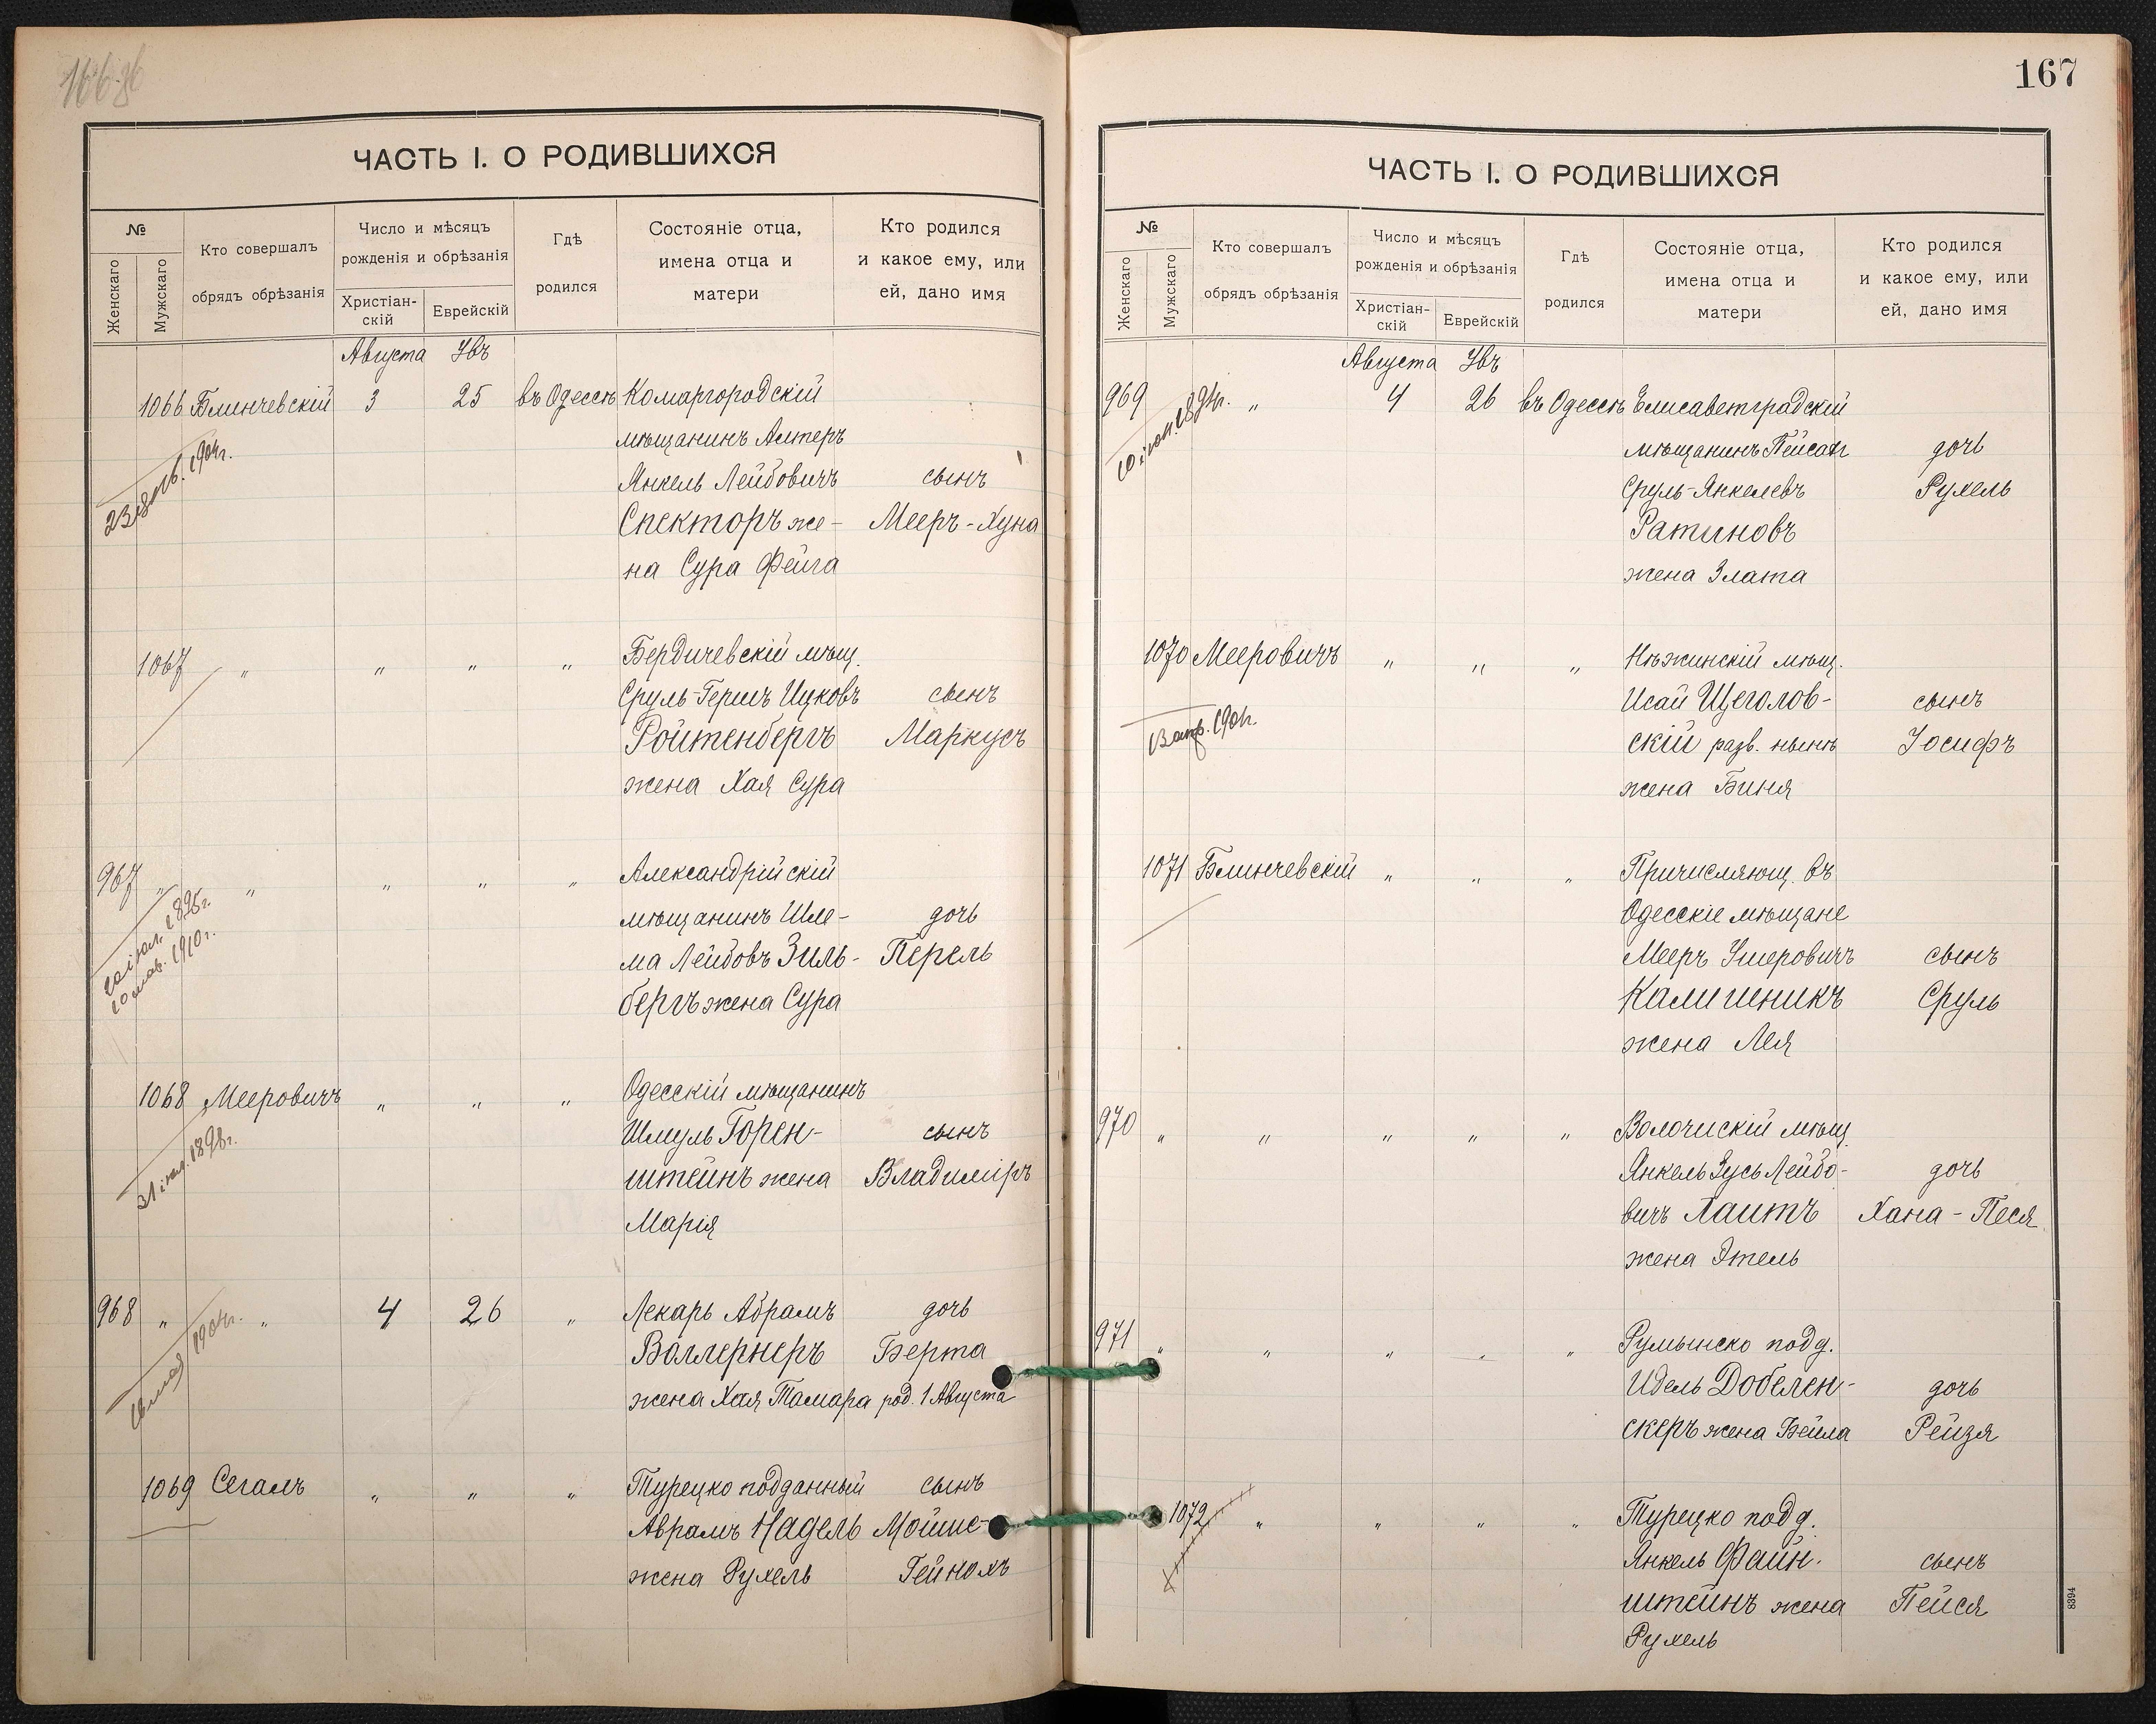 166 об
ЧАСТЬ I. О РОДИВШИХСЯ
№
Женскаго
Мужскаго
Кто совершалъ
обрядъ обрѣзанія
Число и мѣсяцъ
рожденія и обрѣзанія
Христіан-
скій
Еврейскій
Гдѣ
родился
Состояніе отца,
имена отца и
матери
Кто родился
и какое ему, или
ей, дано имя
Августа Увъ
1066 Блинчевскій 3 25 въ Одессѣ Комаргородскій
мѣщанинъ Алтеръ
Янкель Лейбовичъ сынъ
Спекторъ же- Мееръ-Хуна
на Сура Фейга
1904г.
1067 " " " " Бердичевскій мѣщ.
Сруль-Гершъ Ицковъ сынъ
Ройтенбергъ Маркусъ
жена Хая Сура
967 " " " " " Александрійскій
мѣщанинъ Шле- дочь
ма Лейбовъ Зиль- Перель
бергъ жена Сура
1910г.
1068 Мееровичъ " " " Одесскій мѣщанинъ
Шмуль Горен- сынъ
штейнъ жена Владиміръ
Марія
31 1898г.
968 " " 4 26 " Лекарь Абрамъ дочь
Воллернеръ Берта
жена Хая Тамара род. 1 Августа
1904г.
1069 Сегалъ " " " Турецко подданный сынъ
Аврамъ Надель Мойше-
жена Рухель Гейнохъ
167
ЧАСТЬ I. О РОДИВШИХСЯ
№
Женскаго
Мужскаго
Кто совершалъ
обрядъ обрѣзанія
Число и мѣсяцъ
рожденія и обрѣзанія
Христіан-
скій
Еврейскій
Гдѣ
родился
Состояніе отца,
имена отца и
матери
Кто родился
и какое ему, или
ей, дано имя
Августа Увъ
969 " 4 26 въ Одессѣ Елисаветградскій
мѣщанинъ Пейсахъ дочь
Сруль-Янкелевъ Рухель
Ратиновъ
жена Злата
1070 Мееровичъ " " " Нѣжинскій мѣщ.
Исай Щеголов- сынъ
скій разв. нынѣ Іосифъ
жена Биня
1901г.
1071 Блинчевскій " " " Причисляющ. въ
Одесскіе мѣщане
Мееръ Ушеровичъ сынъ
Калишникъ Сруль
жена Лея
970 " " " " " Волочискій мѣщ.
Янкель Зусь Лейбо- дочь
вичъ Хаитъ Хана-Песя
жена Этель
971 " " " " " Румынско подд.
Идель Добелен- дочь
скеръ жена Бейла Рейзя
1072 " " " " Турецко подд.
Янкель Файн- сынъ
штейнъ жена Пейся
Рухель
8394